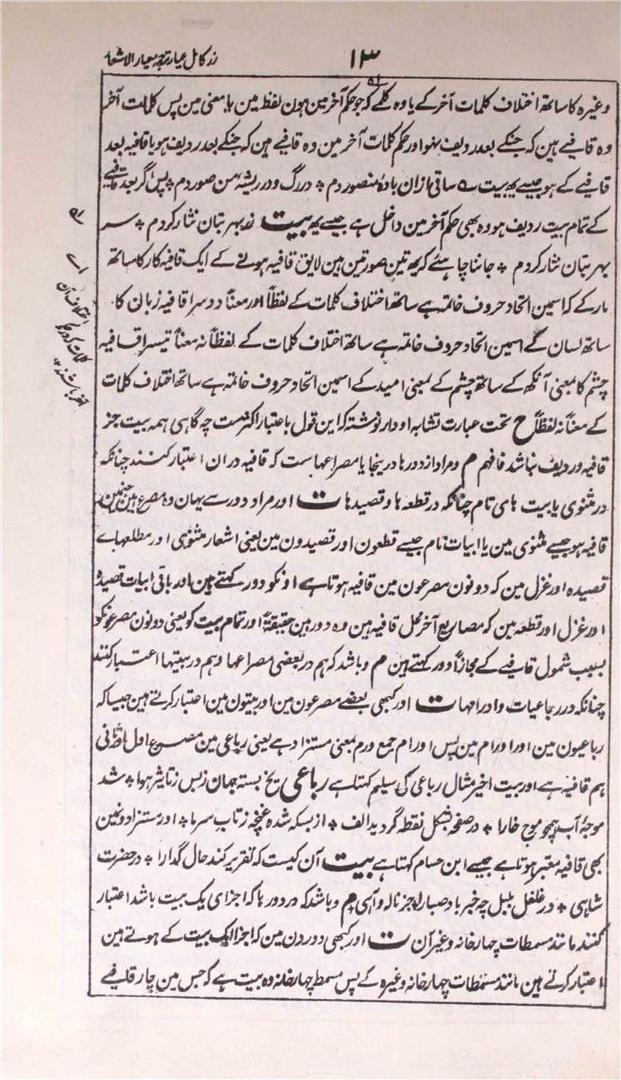 ۱۳
زر کامل عیار ترجمہ معیار الاشعار
وغیرہ کا ساتھ اختلاف کلمات آخر کے یا وہ کلمے کہ جو حکم آخر مین ہون لفظ مین یا معنی مین پس کلمات آخر
وہ قافیے ہین کہ جنکے بعد ردیف نہو اور حکم کلمات آخر مین وہ قافیے ہین کہ جنکے بعد ردیف ہو یا قافیہ بعد
قافیے کے ہو جیسے یہ بیت ساقی ازان بادۂ منصور دم + در رگ و در ریشہ من صور دم + پس اگر بعد قافیے
کے تمام بیت ردیف ہو وہ بھی حکم آخر مین داخل ہے جیسے یہ بیت زر بہر بتان نثار کردم + سر
بہر بتان نثار کردم + جاننا چاہئے کہ یہ تین صورتین ہین لایق قافیہ ہونے کے ایک قافیہ کار کا ساتھ
بار کے کہ اسمین اتحاد حروف خاتمہ ہے ساتھ اختلاف کلمات کے لفظاً اور معناً دوسرا قافیہ زبان کا
ساتھ لسان کے اسمین اتحاد حروف خاتمہ ہے ساتھ اختلاف کلمات کے لفظاً نہ معناً تیسرا قافیہ
چشم کا بمعنی آنکھ کے ساتھ چشم کے بمعنی امید کے اسمین اتحاد حروف خاتمہ ہے ساتھ اختلاف کلمات
کے معناً نہ لفظاً ح تحت عبارت تشابہ او دار نوشتہ کہ این قول باعتبار اکثرست چہ گاہی ہمہ بیت جز
قافیہ و ردیف نباشد فافہم م و مراد از دورہا درینجا یا مصراعہاست کہ قافیہ در ان اعتبار کنند چنانکہ
در مثنوی یا بیت ہای تام چنانکہ در قطعہ ہا و قصیدہا ت اور مراد دور سے یہان وہ مصرع ہین جنمین
قافیہ ہو جیسے مثنوی مین یا ابیات تام جیسے قطعون اور قصیدون مین یعنی اشعار مثنوی اور مطلعہاے
قصیدہ اور غزل مین کہ دونون مصرعون مین قافیہ ہوتا ہے اونکو دور کہتے ہین اور باقی ابیات قصیدہ
اور غزل اور قطعہ مین کہ مصاریع آخر محل قافیہ ہین وہ دور ہین حقیقۃً اور تمام بیت کو یعنی دونون مصرعونکو
بسبب شمول قافیے کے مجازاً دور کہتے ہین م و باشد کہ ہم در بعضی مصراعہا و ہم در بیتہا اعتبار کنند
چنانکہ در رباعیات و ادرامہا ت اور کبھی بعضے مصرعون مین اور بیتون مین اعتبار کرتے ہین جیسا کہ
رباعیون مین اور اورام مین پس اورام جمع ورم بمعنی مستزاد ہے یعنی رباعی مین مصرع اول و ثانی
ہم قافیہ ہے اور بیت اخیر مثال رباعی کی سلیم کہتا ہے رباعی یخ بستہ جہان زبس ز تاثیر ہوا + شد
موجۂ آب ہمچو موج خارا + در صفحہ بشکل نقطہ گردید الف + از بسکہ شدہ غنچہ ز تاب سرما + اور مستزاد ونمین
بھی قافیہ معتبر ہوتا ہے جیسے ابن حسام کہتا ہے بیت آن کیست کہ تقریر کند حال گدا را + در حضرت
شاہی + در غلغل بلبل چہ خبر باد صبا را + جز نالہ و آہی م و باشد کہ مر دورہا کہ اجزای یک بیت باشد اعتبار
کنند مانند مسمطات چہار خانہ و غیر آن ت اور کبھی دورون مین کہ اجزا ایک بیت کے ہوتے ہین
اعتبار کرتے ہین مانند مسمطات چہار خانہ وغیرہ کے پس مسمط چہار خانہ وہ بیت ہے کہ جس مین چار قافیے